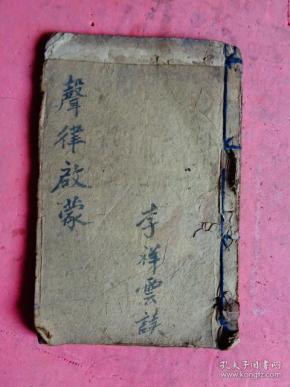 聲律啟蒙
李祥雲讀
孔夫子旧书网